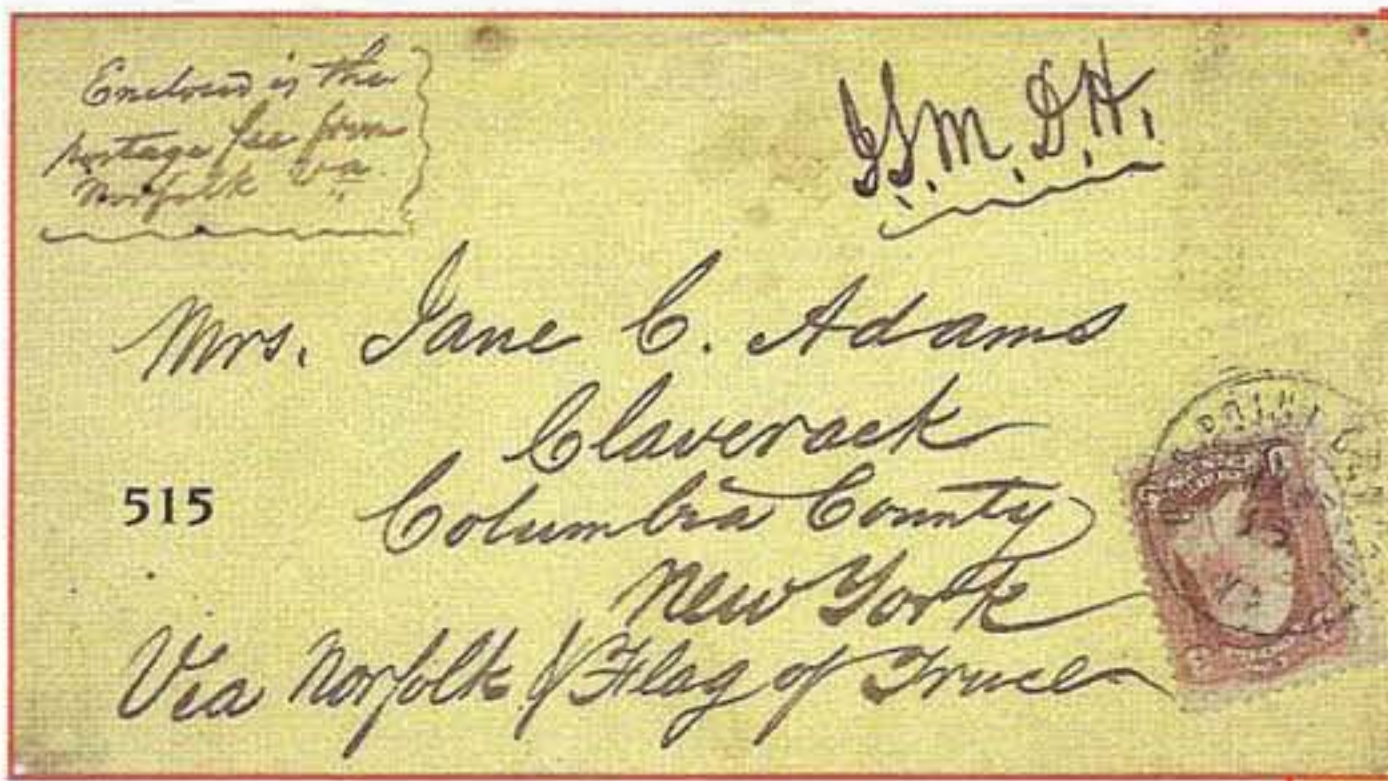 Enclosed is the
postage fee from
Norfolk Va
Mrs. Jane C. Adams
Claverack
515
Columbia County
New York
Via Norfolk & Flag of Truce